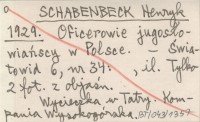 a SCHABENBECK Henryk
1929. Oficerowie jugosło-
wiańscy w Polsce. – Świa-
towid 6, nr 34: , il. Tylko
2 fot. z objaśn.
Wycieczka w Tatry. Kom-
pania Wysokogórska.